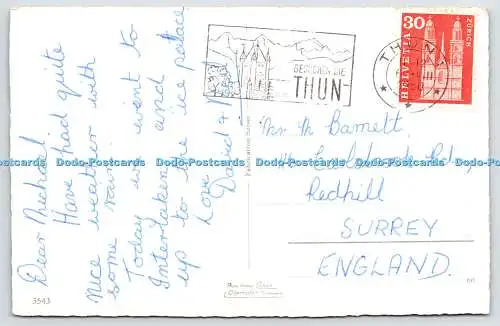 Dear Michael
Have had quite
nice weather with
some rain.
Today we went to
Interlaken and
up to the ice palace
Love
David +
BESUCHEN SIE
THUN
THUN
HELVETIA
30
ZÜRICH
Mr M Barnett
Rd,
Redhill
SURREY
ENGLAND.
3543
Dodo-Postcards Dodo-Postcards Dodo-Postcards Dodo-Postcards Dodo-Postcards Dodo-Postcards